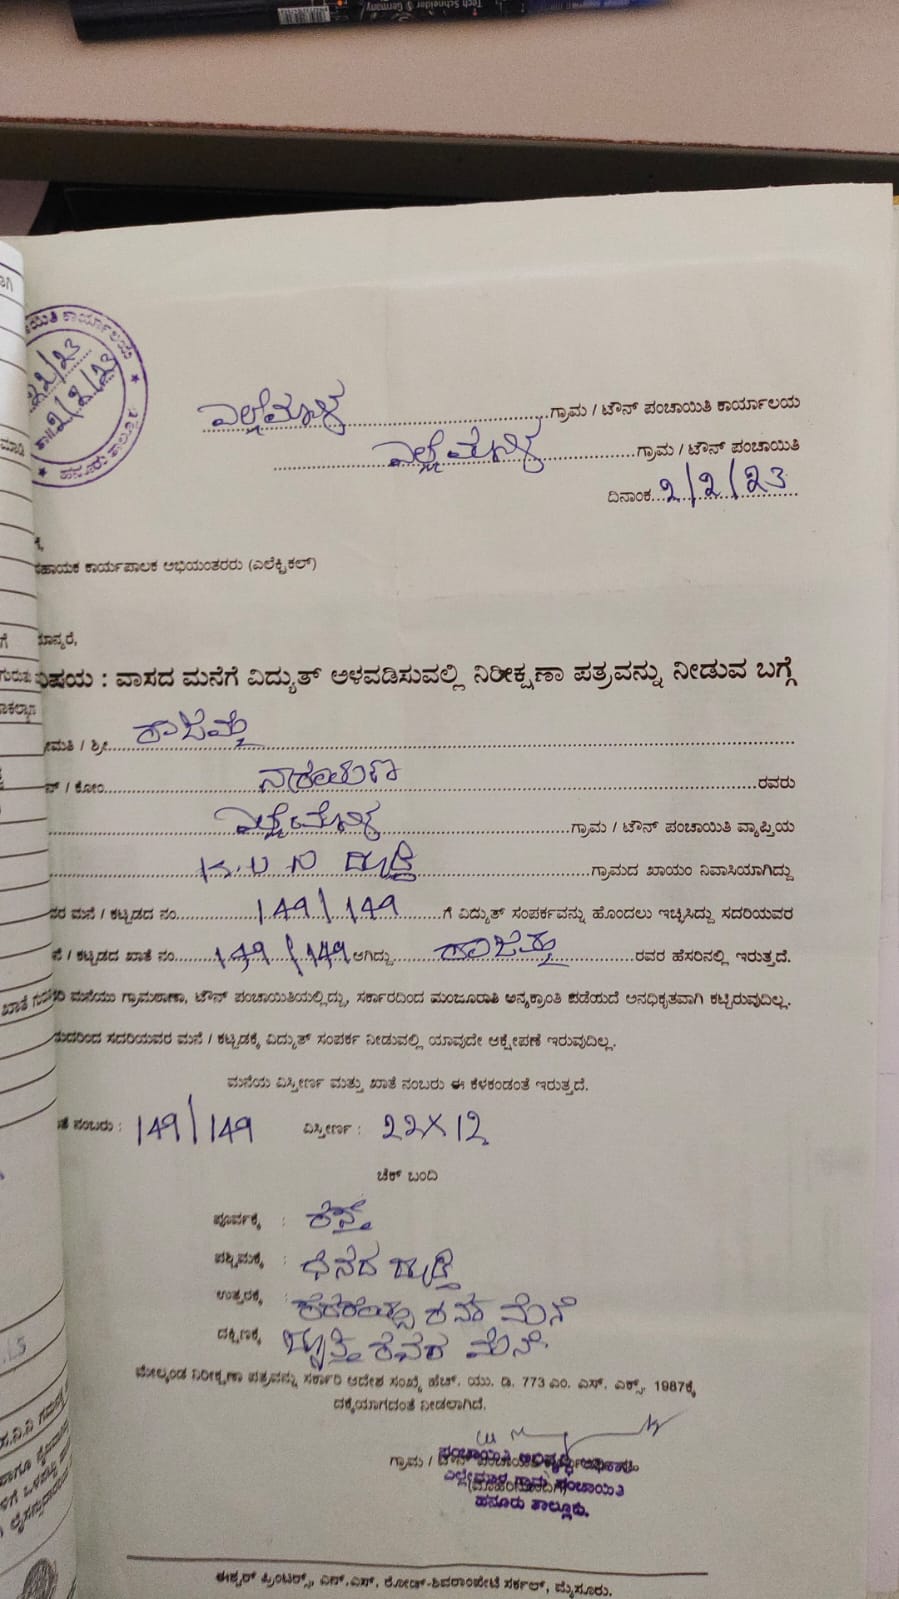 Tech Schneider Germany
ಎಲ್ಲೇಮಾಳ ಗ್ರಾಮ / ಟೌನ್ ಪಂಚಾಯಿತಿ ಕಾರ್ಯಾಲಯ
ಎಲ್ಲೇಮಾಳ ಗ್ರಾಮ / ಟೌನ್ ಪಂಚಾಯಿತಿ
ದಿನಾಂಕ 2/2/23
ಕಾರ್ಯಪಾಲಕ ಅಭಿಯಂತರರು (ಎಲೆಕ್ಟ್ರಿಕಲ್)
ಮಾನ್ಯರೆ,
ವಿಷಯ : ವಾಸದ ಮನೆಗೆ ವಿದ್ಯುತ್ ಅಳವಡಿಸುವಲ್ಲಿ ನಿರೀಕ್ಷಣಾ ಪತ್ರವನ್ನು ನೀಡುವ ಬಗ್ಗೆ
/ ಶ್ರೀ ರಾಜಮ್ಮ
/ ಕೋಂ ನಾರಾಯಣ ರವರು
ಎಲ್ಲೇಮಾಳ ಗ್ರಾಮ / ಟೌನ್ ಪಂಚಾಯಿತಿ ವ್ಯಾಪ್ತಿಯ
K.U.N ದೊಡ್ಡಿ ಗ್ರಾಮದ ಖಾಯಂ ನಿವಾಸಿಯಾಗಿದ್ದು
ಮನೆ / ಕಟ್ಟಡದ ನಂ. 149/149 ಗೆ ವಿದ್ಯುತ್ ಸಂಪರ್ಕವನ್ನು ಹೊಂದಲು ಇಚ್ಛಿಸಿದ್ದು ಸದರಿಯವರ
/ ಕಟ್ಟಡದ ಖಾತೆ ನಂ. 149/149 ಆಗಿದ್ದು ರಾಜಮ್ಮ ರವರ ಹೆಸರಿನಲ್ಲಿ ಇರುತ್ತದೆ.
ಮನೆಯು ಗ್ರಾಮಠಾಣಾ, ಟೌನ್ ಪಂಚಾಯಿತಿಯಲ್ಲಿದ್ದು, ಸರ್ಕಾರದಿಂದ ಮಂಜೂರಾತಿ ಅನ್ಯಕ್ರಾಂತಿ ಪಡೆಯದೆ ಅನಧಿಕೃತವಾಗಿ ಕಟ್ಟಿರುವುದಿಲ್ಲ.
ಸದರಿಯವರ ಮನೆ / ಕಟ್ಟಡಕ್ಕೆ ವಿದ್ಯುತ್ ಸಂಪರ್ಕ ನೀಡುವಲ್ಲಿ ಯಾವುದೇ ಆಕ್ಷೇಪಣೆ ಇರುವುದಿಲ್ಲ.
ಮನೆಯ ವಿಸ್ತೀರ್ಣ ಮತ್ತು ಖಾತೆ ನಂಬರು ಈ ಕೆಳಕಂಡಂತೆ ಇರುತ್ತದೆ.
ನಂಬರು : 149/149 ವಿಸ್ತೀರ್ಣ : 22X12
ಚೆಕ್ ಬಂದಿ
ಪೂರ್ವಕ್ಕೆ : ರಸ್ತೆ
ಪಶ್ಚಿಮಕ್ಕೆ : ದನದ ದೊಡ್ಡಿ
ಉತ್ತರಕ್ಕೆ : ರವರ ಮನೆ
ದಕ್ಷಿಣಕ್ಕೆ : ರವರ ಮನೆ.
ಮೇಲ್ಕಂಡ ನಿರೀಕ್ಷಣಾ ಪತ್ರವನ್ನು ಸರ್ಕಾರಿ ಆದೇಶ ಸಂಖ್ಯೆ ಹೆಚ್. ಯು. ಡಿ. 773 ಎಂ. ಎಸ್. ಎಕ್ಸ್. 1987ಕ್ಕೆ
ದಕ್ಕೆಯಾಗದಂತೆ ನೀಡಲಾಗಿದೆ.
ಪಂಚಾಯಿತಿ ಅಭಿವೃದ್ಧಿ ಅಧಿಕಾರಿ
ಎಲ್ಲೇಮಾಳ ಗ್ರಾಮ ಪಂಚಾಯಿತಿ
ಹನೂರು ತಾಲ್ಲೂಕು.
ಈಶ್ವರ್ ಪ್ರಿಂಟರ್ಸ್, ಎನ್.ಎಸ್. ರೋಡ್-ಶಿವರಾಂಪೇಟೆ ಸರ್ಕಲ್, ಮೈಸೂರು.